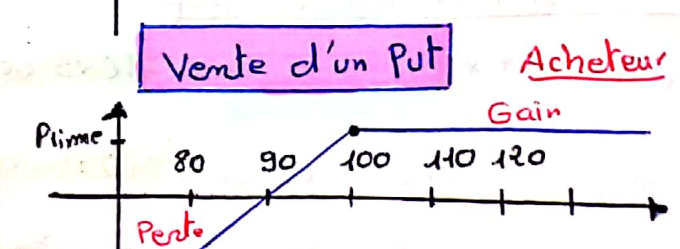 Vente d'un Put
Acheteur
Gain
Prime
80 90 100 110 120
Perte